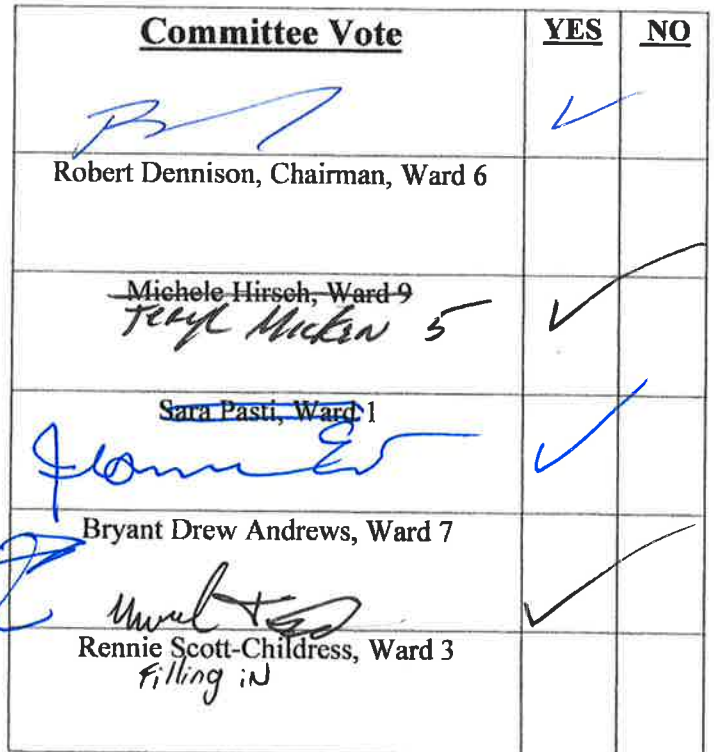 Committee Vote YES NO
Robert Dennison, Chairman, Ward 6
Michele Hirsch, Ward 9
5
Sara Pasti, Ward 1
Bryant Drew Andrews, Ward 7
Rennie Scott-Childress, Ward 3
Filling iN